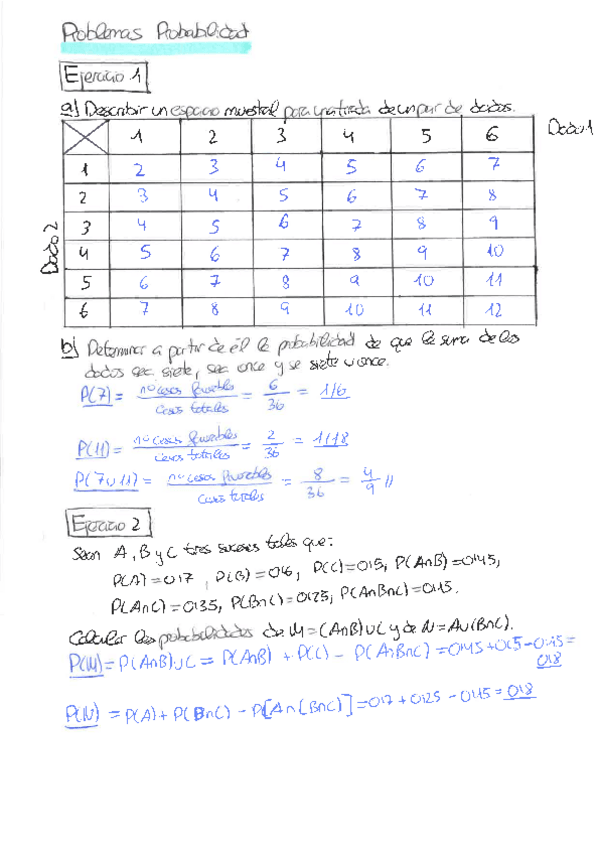 Problemas Probabilidad
Ejercicio 1
a) Describir un espacio muestral para una tirada de un par de dados.
1 2 3 4 5 6 Dado 1
Dado 2
1 2 3 4 5 6 7
2 3 4 5 6 7 8
3 4 5 6 7 8 9
4 5 6 7 8 9 10
5 6 7 8 9 10 11
6 7 8 9 10 11 12
b) Determinar a partir de él la probabilidad de que la suma de los
dados sea siete, sea once y se siete u once.
P(7) = nº casos favorables / casos totales = 6/36 = 1/6
P(11) = nº casos favorables / casos totales = 2/36 = 1/18
P(7∪11) = nº casos favorables / casos totales = 8/36 = 4/9 //
Ejercicio 2
Sean A, B y C tres sucesos tales que:
P(A) = 0'7, P(B) = 0'6, P(C) = 0'5, P(A∩B) = 0'45,
P(A∩C) = 0'35, P(B∩C) = 0'25, P(A∩B∩C) = 0'15.
Calcular las probabilidades de M = (A∩B)∪C y de N = A∪(B∩C).
P(M) = P(A∩B)∪C = P(A∩B) + P(C) - P(A∩B∩C) = 0'45 + 0'5 - 0'15 =
0'8
P(N) = P(A) + P(B∩C) - P[A∩(B∩C)] = 0'7 + 0'25 - 0'15 = 0'8